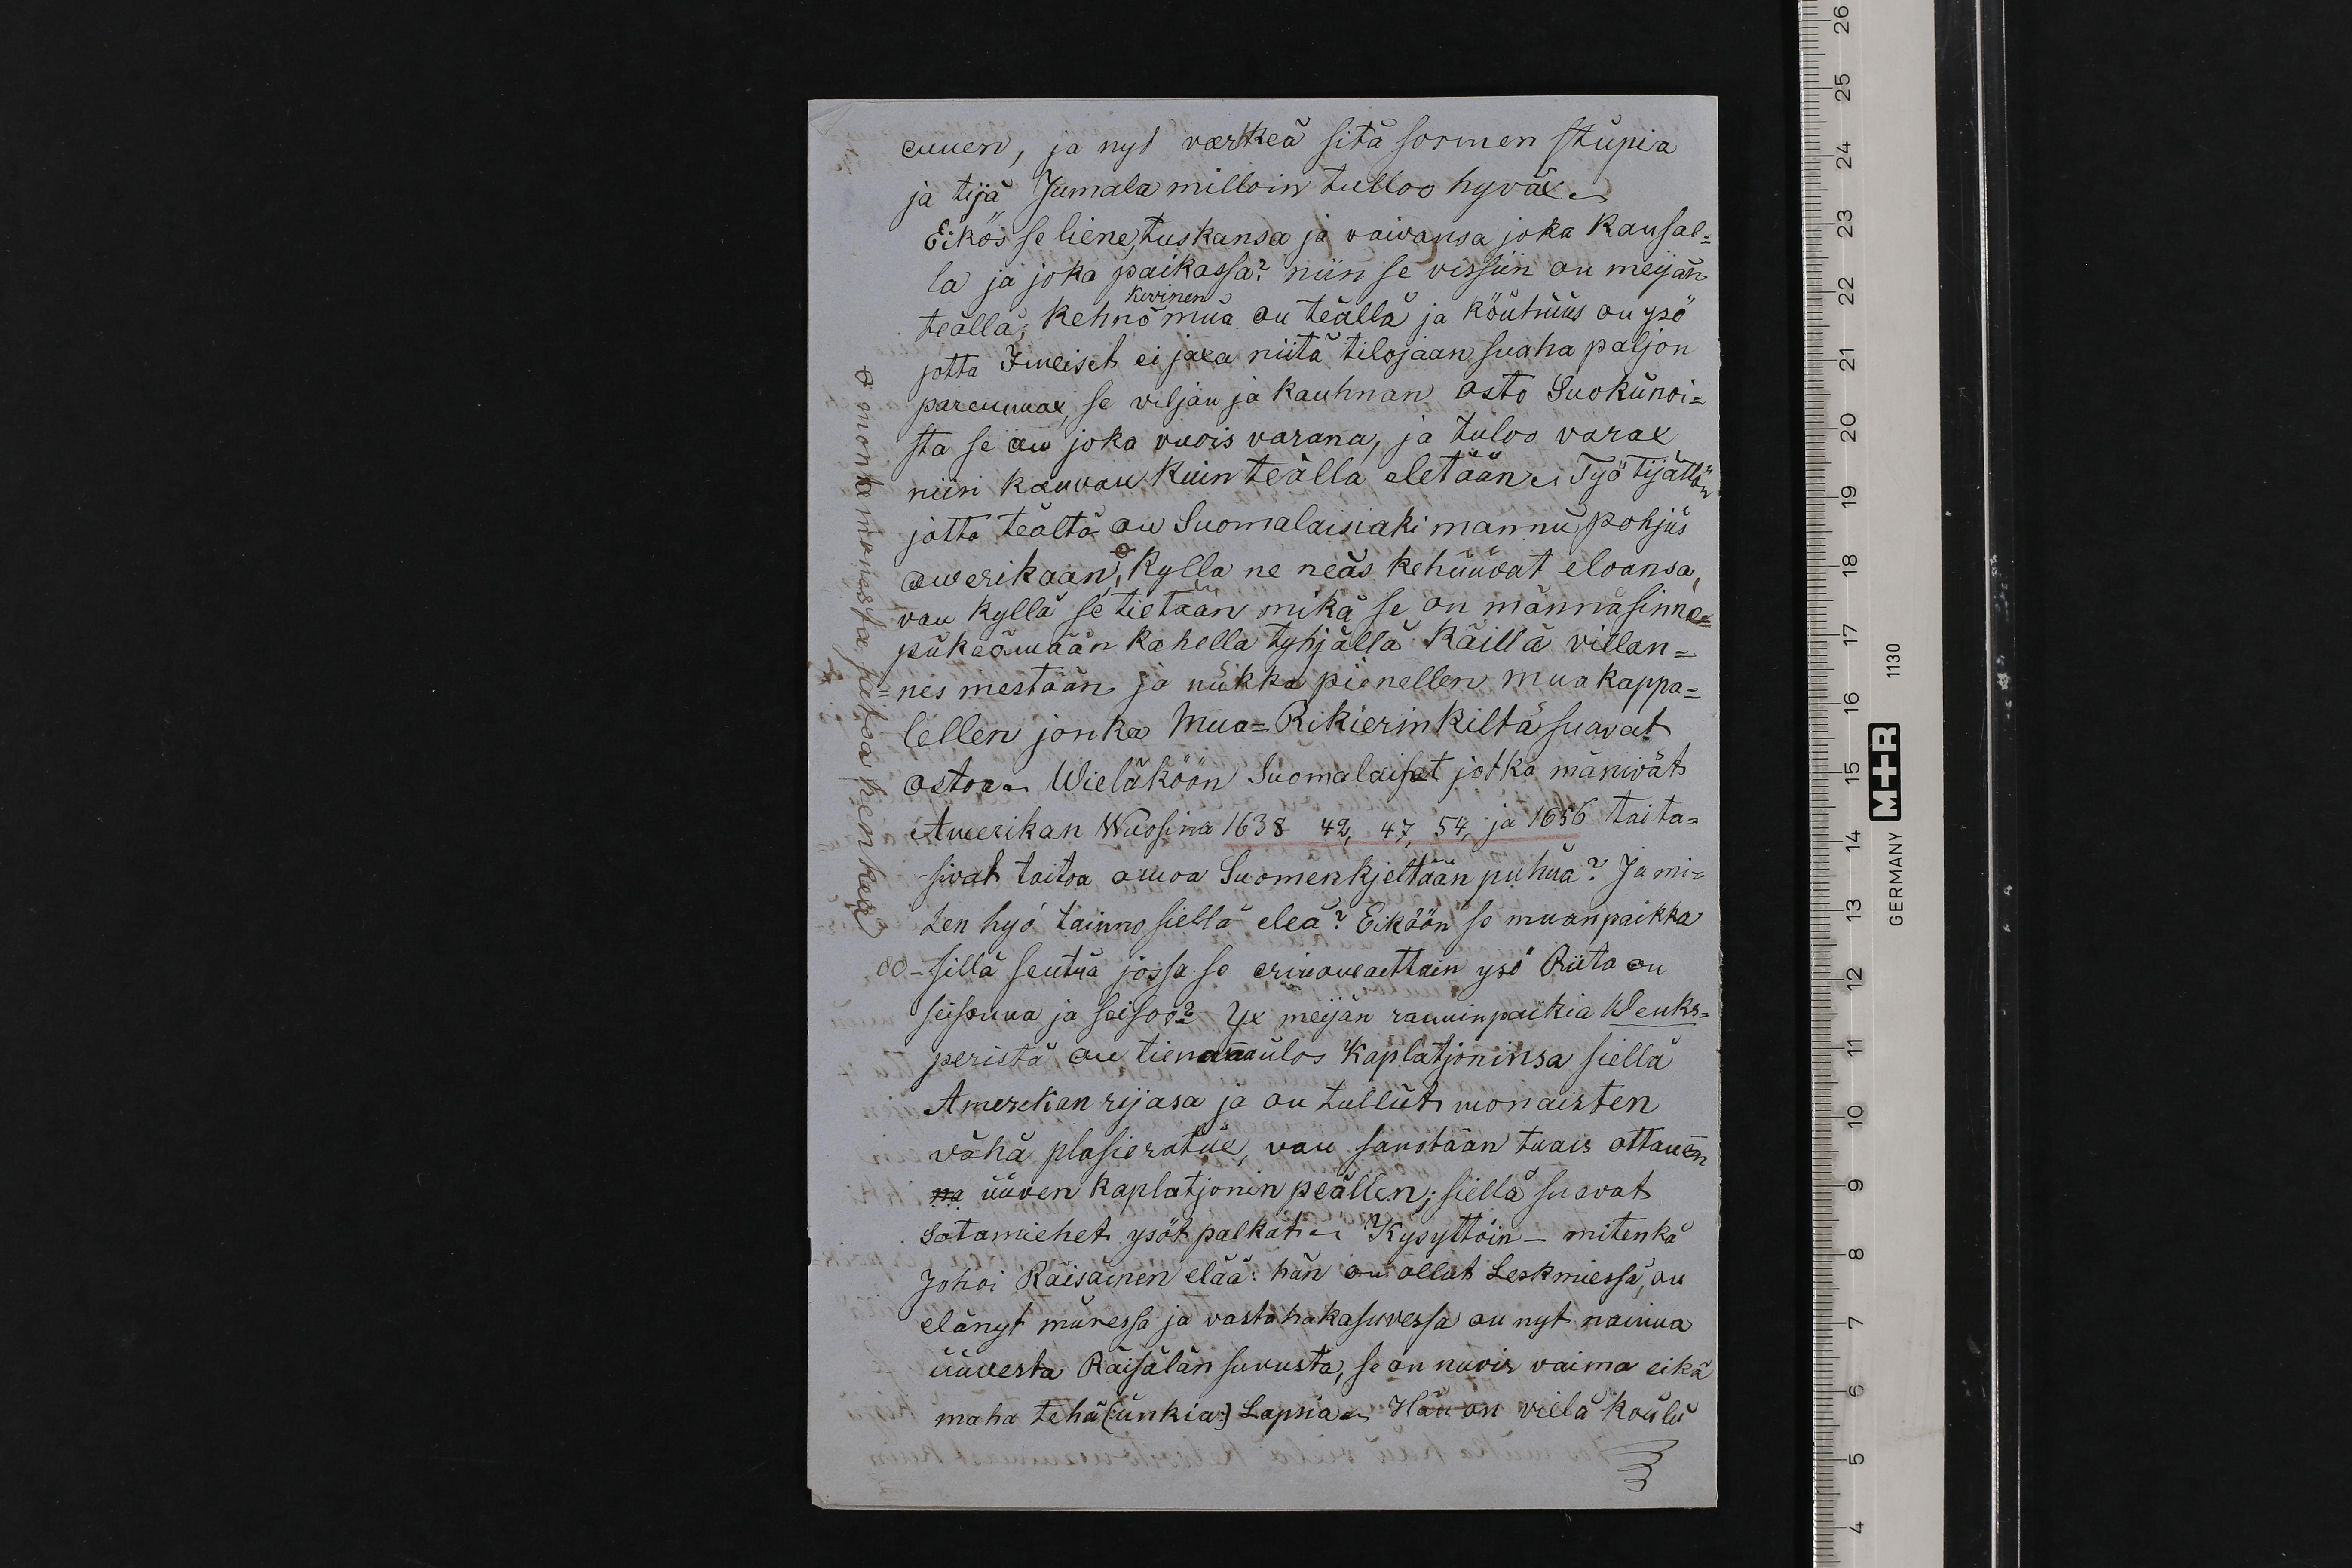 euuen, ja nyt værkeä sitä sormen stupia
ja tijä Jumala milloin tulloo hyväx.
Eikös se liene, tuskansa ja vaivansa joka kansal=
la ja joka paikassa? niin se vissiin on meijän
teällä; kehno kivinen mua on teällä ja köühüüs on ysö
jotta Imeiset ei jaxa niitä tilojaan suaha paljon
paremmax, se viljan ja kauhnan osto Suokunoi=
sta se on joka vuois varana, ja tuloo varax
niin kauvan kuin teällä eletään. Työ tijättön
jotta teältä on Suomalaisiaki mannu pohjus
amerikaan, ꝋ Kyllä ne neäs kehüüvät eloansa,
van kyllä se tietään mikä se on männä sinne=
pükeämään kahella tyhjällä käillä villan=
=nes mestään ja nükkä pienellen mua kappa=
lellen jonka Mua=Rikierinkiltä suavat
ostoa. Wieläköön Suomalaiset jotka mänivät
Amerikan Wuosina 1638 42, 47, 54, ja 1656 taita=
sivat taitoa omoa Suomenkjeltään puhua? Ja mi=
ten hyö tainno siellä eleä? Eiköön se muanpaikka
oo- sillä seutua jossa se erinomaettain ysö Riita on
seisonna ja seisoo? Yx meijän ranninpaikia Wenks=
peristä on tienannulos Kaplatjoninsa siellä
Amerikan rijasa ja on tullut monaisten
vähä plasieratüx, van sanotaan tuais ottanen
na üüven kaplatjonin peällen; siellä suavat
Sotamiehet ysöt palkat. Kysyttöin - mitenkä
Johoi Räisäinen elää: hän on ollut Leskmiessä, on
elänyt müressa ja vastahakasuvessa on nyt nainna
üüvesta Räisälän suvusta, se on nuoir vaimo eikä
maha tehä (:ünkiä:) Lapsia. Hän on vielä koulu
ꝋ monta monesta paikoa henkeä